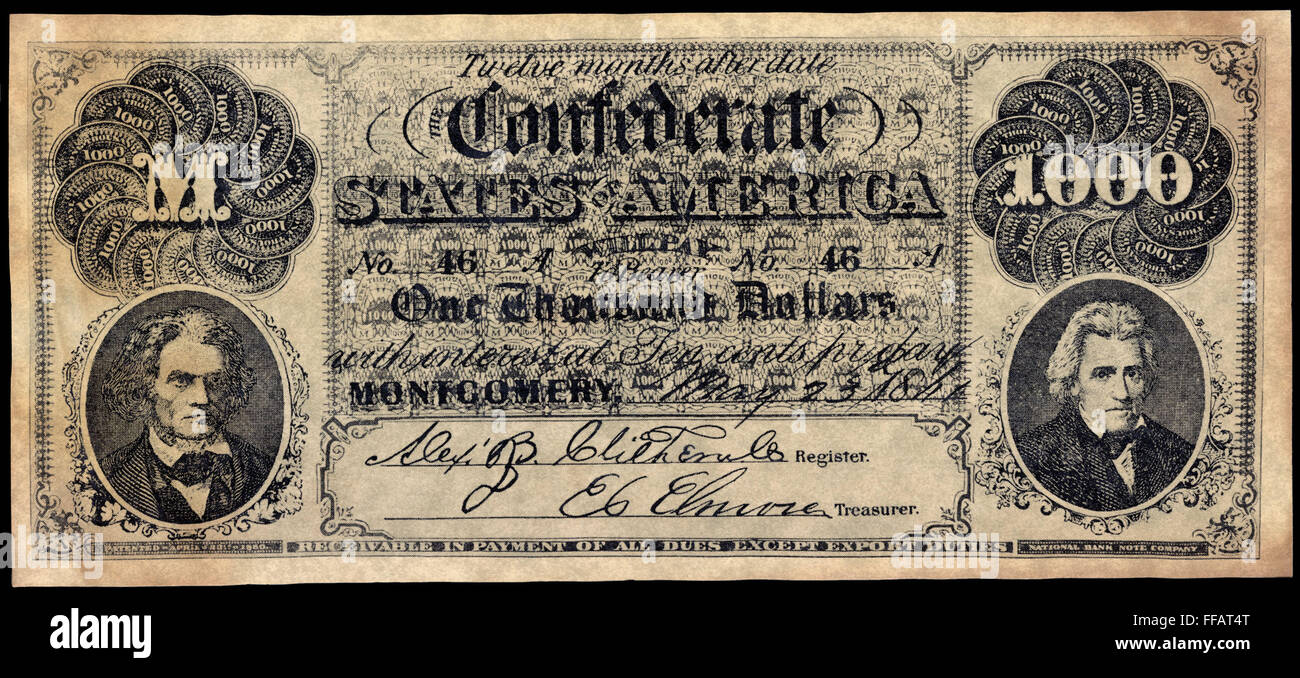 Twelve months after date
THE Confederate
M
1000
STATES OF AMERICA
WILL PAY
No. 46 A
No. 46 A
to Bearer
One Thousand Dollars
with interest at Ten cents pr day
MONTGOMERY, May 23 1861
Alex. B. Clitherall Register.
E C Elmore Treasurer.
RECEIVABLE IN PAYMENT OF ALL DUES EXCEPT EXPORT DUTIES
NATIONAL BANK NOTE COMPANY
alamy stock photo
FFAT4T